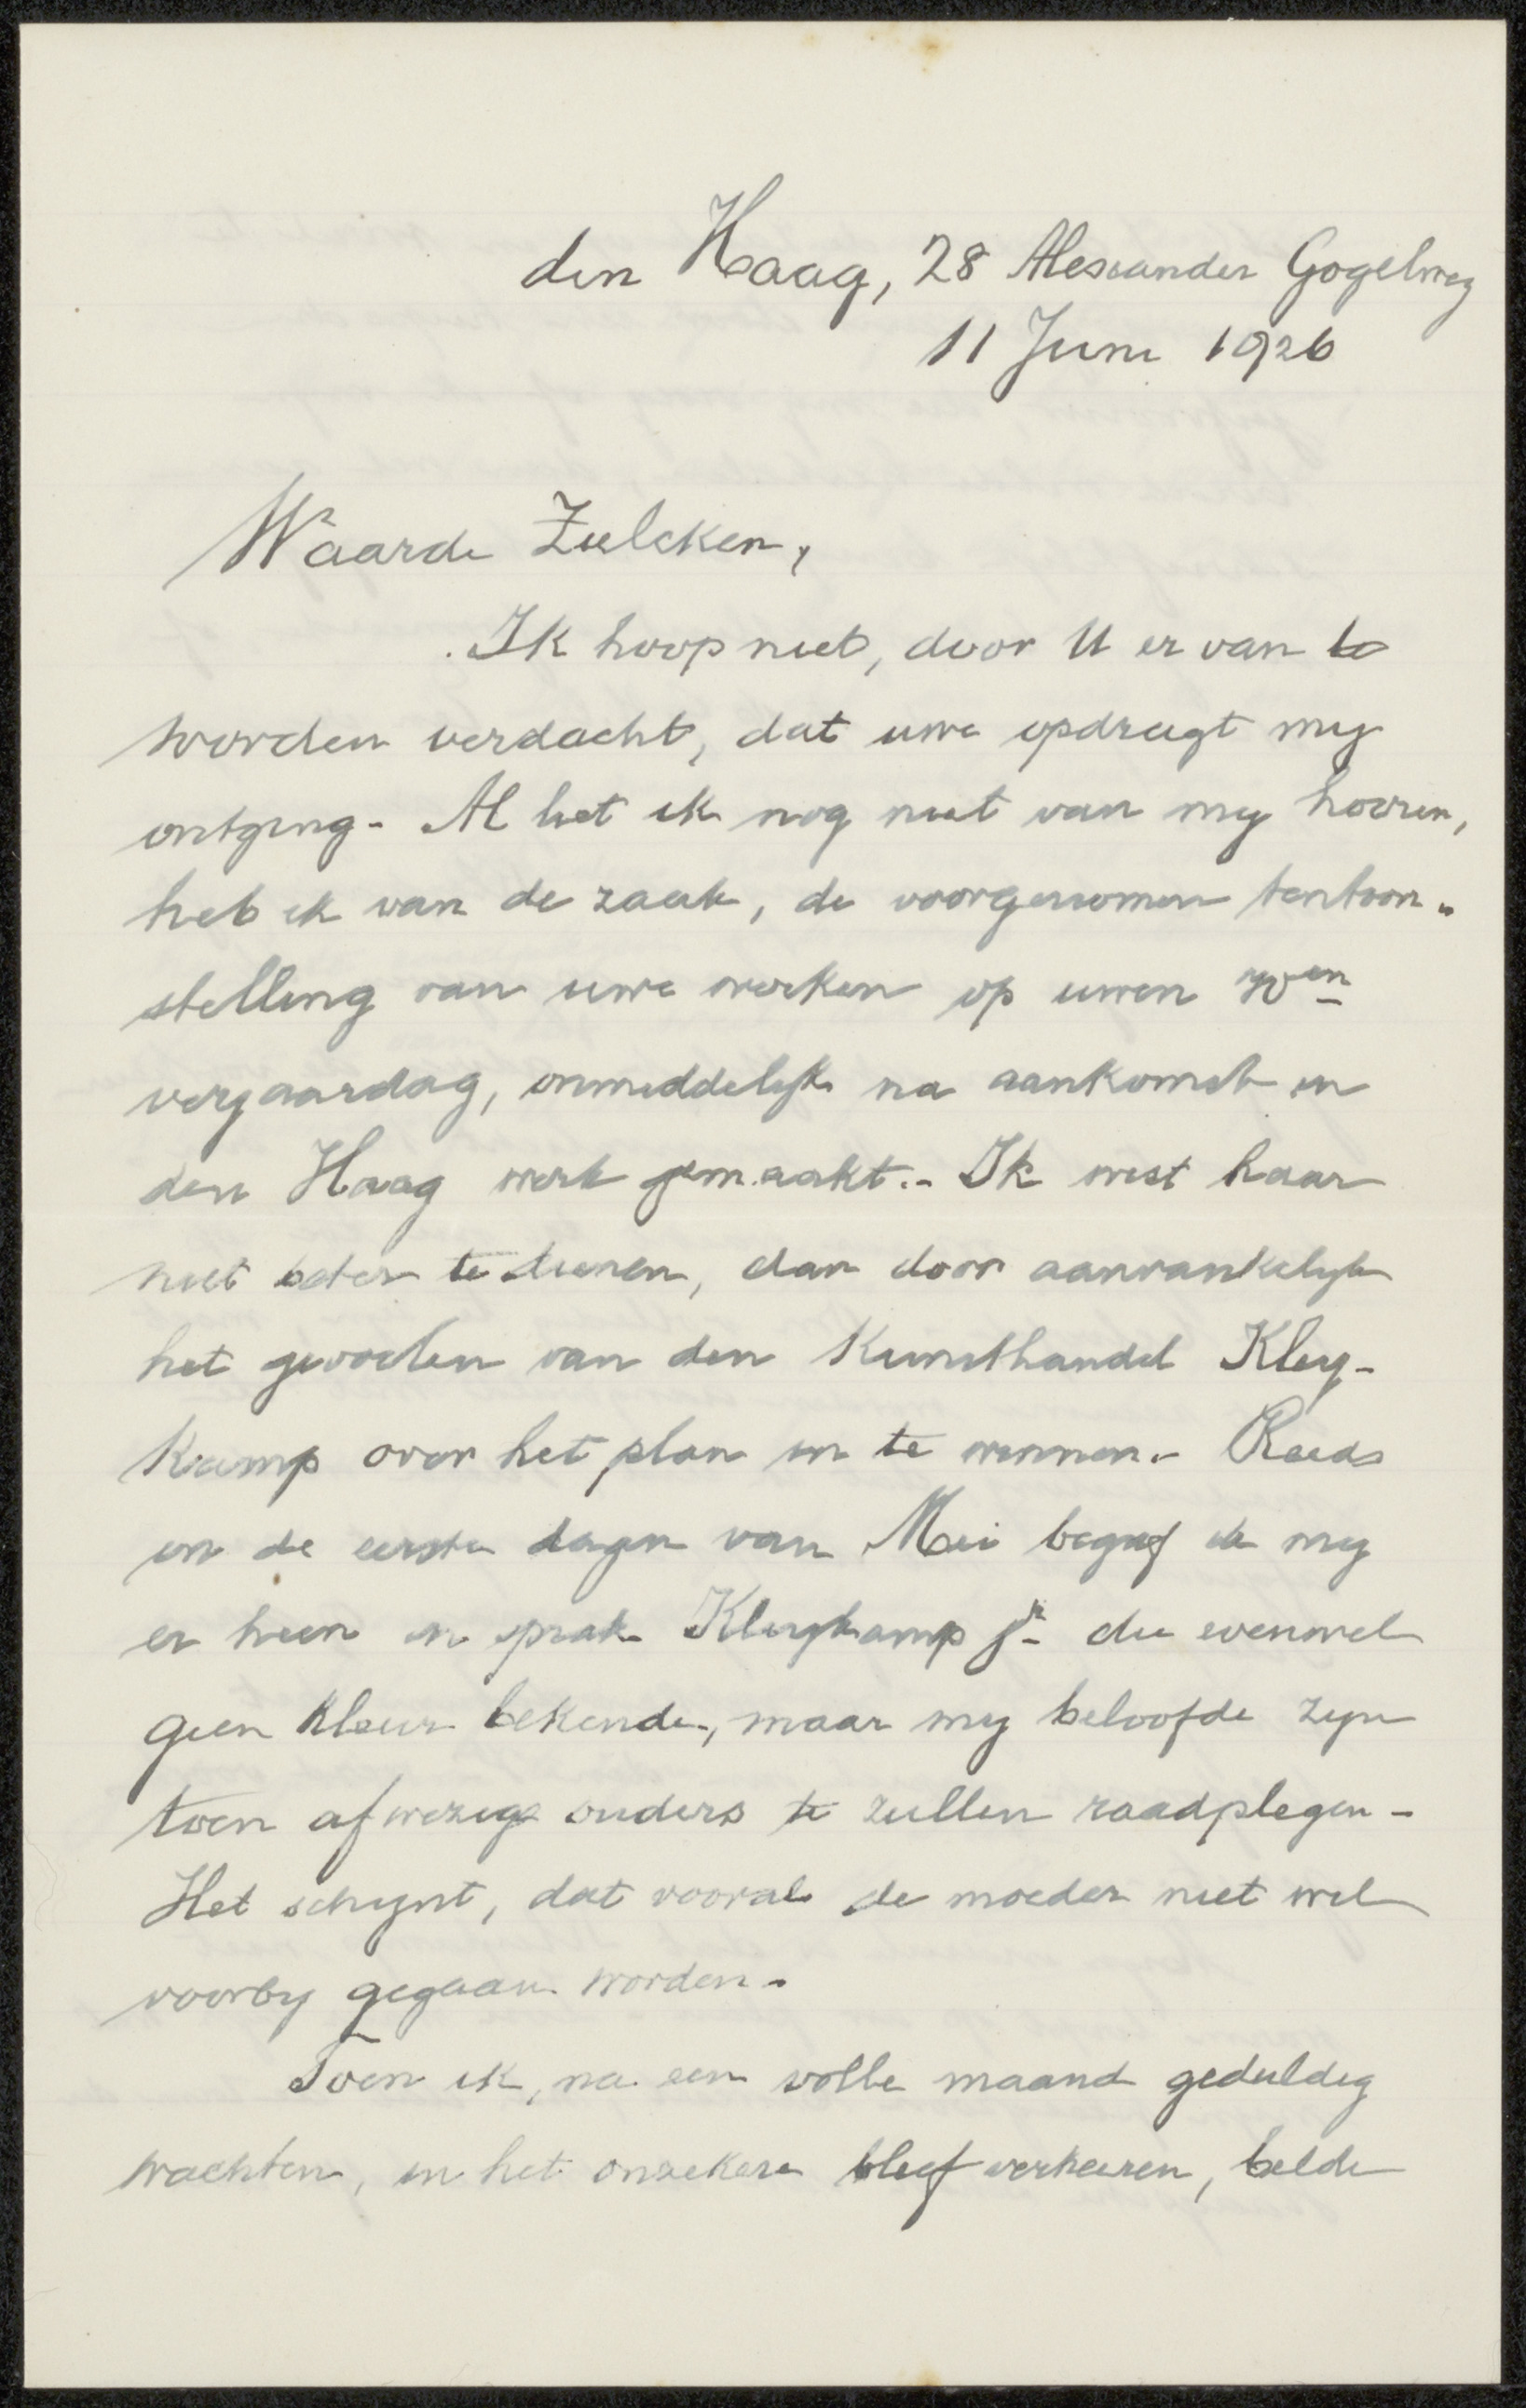 den Haag, 28 Alexander Gogelweg
11 Juni 1926
Waarde Zilcken,
Ik hoop niet, door U er van te
worden verdacht, dat uwe opdragt my
ontging - Al liet ik nog niet van my hooren,
heb ik van de zaak, de voorgenomen tentoon-
stelling van uwe werken op uwen 70en
verjaardag, onmiddelyk na aankomst in
den Haag werk gemaakt.- Ik wist haar
niet beter te dienen, dan door aanvankelyk
het gevoelen van den Kunsthandel Kley-
kamp over het plan in te winnen.- Reeds
in de eerste dagen van Mei begaf ik my
er heen en sprak Kleykamp jr die evenwel
geen kleur bekende, maar my beloofde zyn
toen afwezige ouders te zullen raadplegen -
Het schynt, dat vooral de moeder niet wil
voorby gegaan worden -
Toen ik, na een volle maand geduldig
wachten, in het onzekere bleef verkeeren, belde